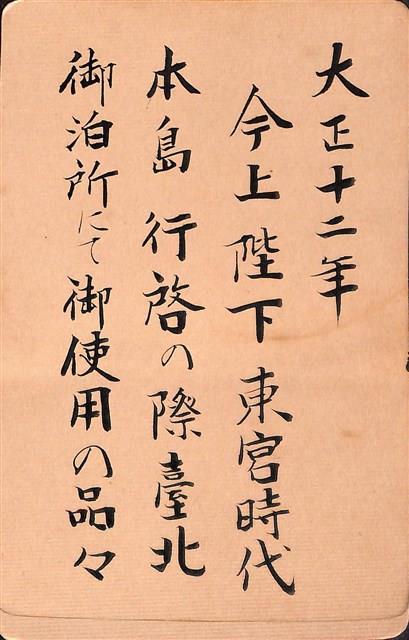 大正十二年
今上陛下東宮時代
本島行啓の際臺北
御泊所にて御使用の品々